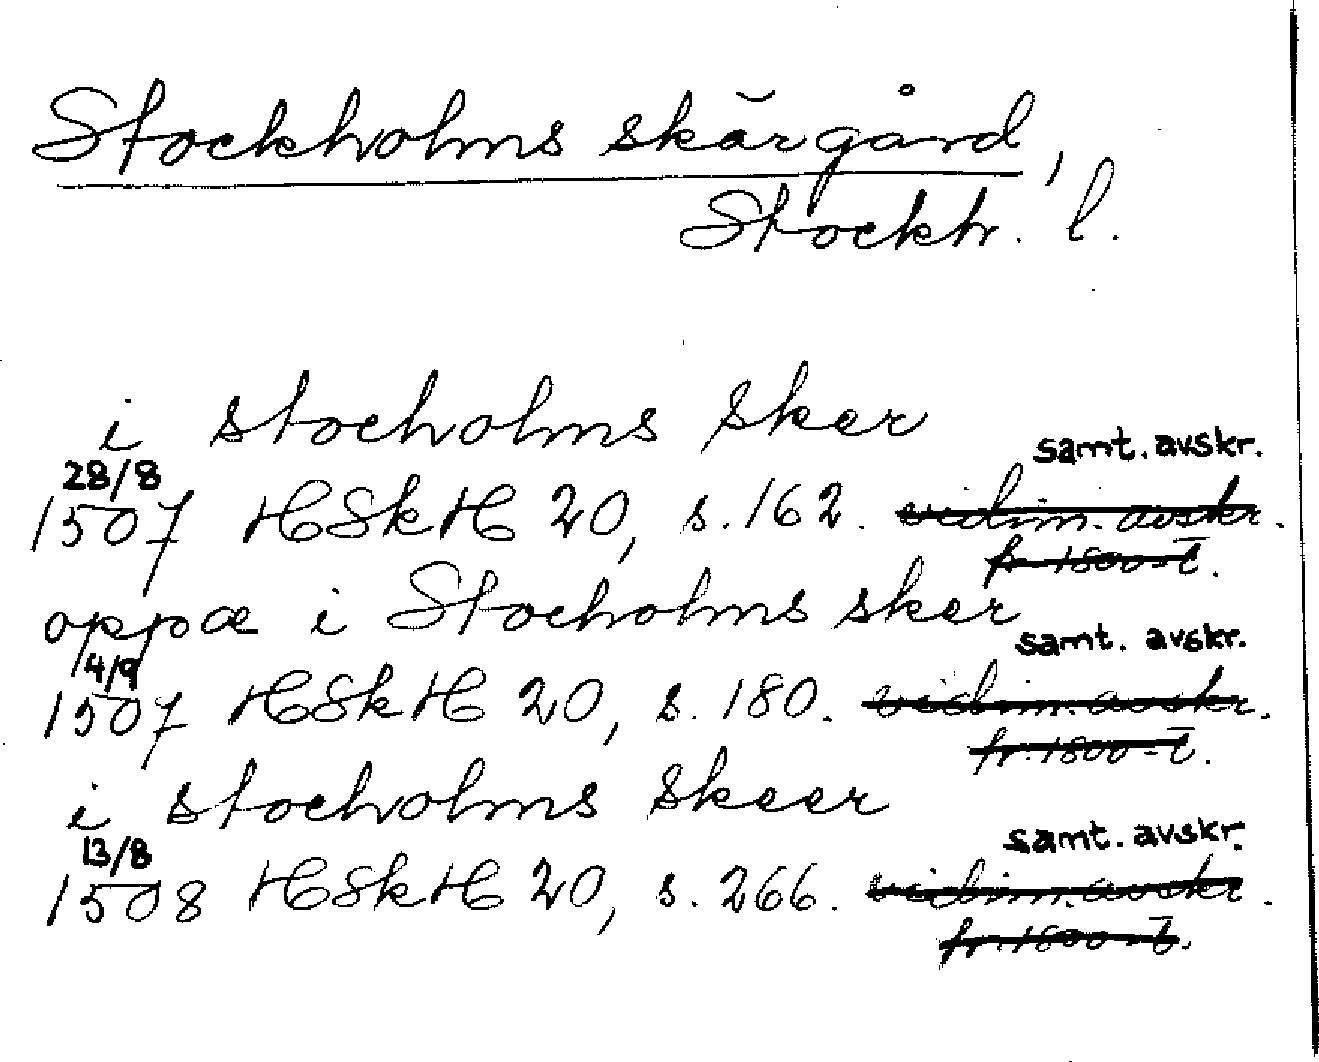 Stockholms skärgård,
Stockh. l.
i stocholms sker
samt. avskr.
28/8
1507 HSkH 20, s. 162. vidim. avskr.
fr. 1800-t.
oppa i Stocholms sker
samt. avskr.
14/9
1507 HSkH 20, s. 180. vidim. avskr.
fr. 1800-t.
i stocholms skeer
samt. avskr.
13/8
1508 HSkH 20, s. 266. vidim. avskr.
fr. 1800-t.